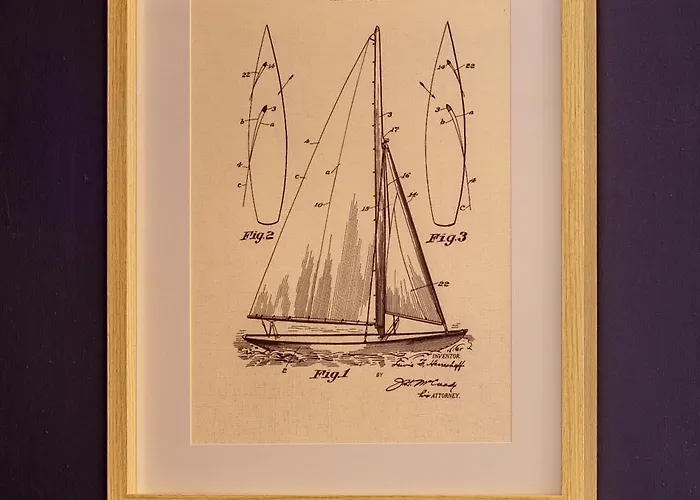 22 14
3
b a
4
c
Fig.2
14 22
3
b a
4
C
Fig.3
3
17
4
c a
16
14
10 15
22
Fig.1
INVENTOR.
Lewis F. Herreshoff.
BY
J.H. McCready
his ATTORNEY.